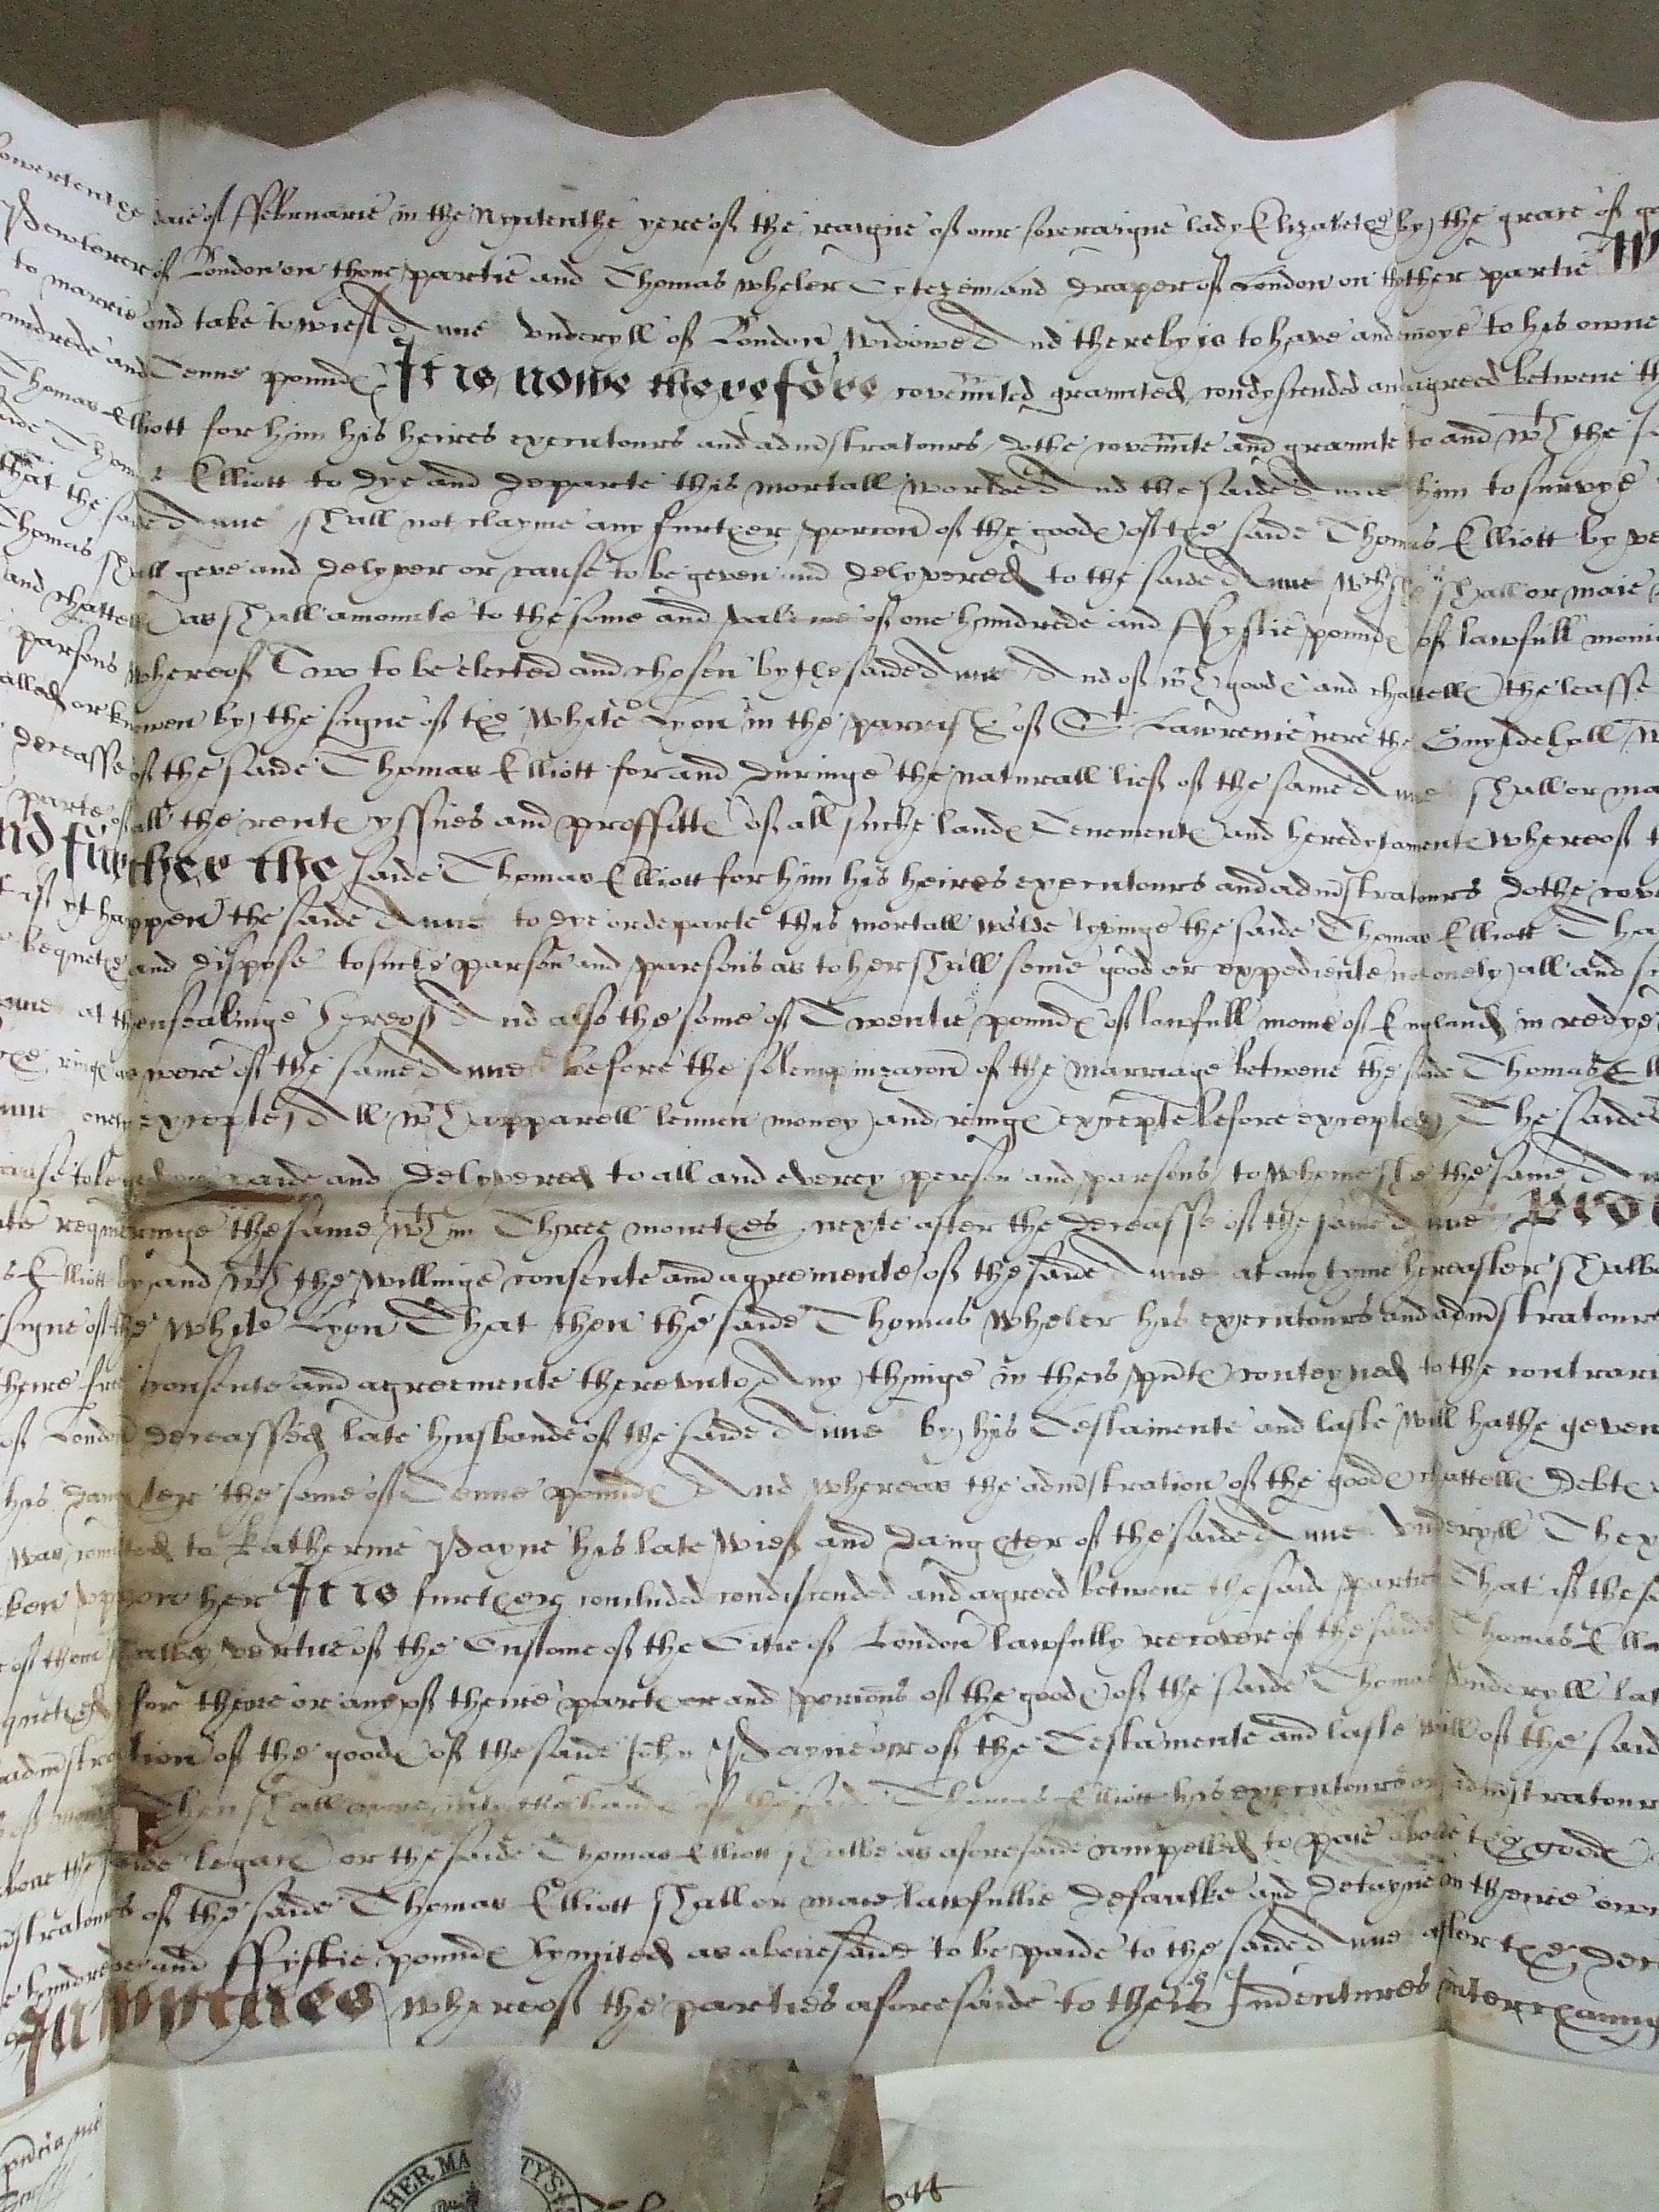 daie of ffebruarie in the Nyntenthe yere of the raigne of our soveraigne lady Elizabethe by the grace of go
Pewterer of London on thone partie and Thomas Wheler Cytezein and Draper of London on thother partie W
to marrie and take to wief Anne Underyll of London Widowe And thereby is to have and to his owne
hundrede and Tenne pounde It is nowe therefore covennted graunted condyscended and agreed betwene th
Thomas Elliott for hym his heires executours and admistratours dothe covennte and graunte to and wth the sa
saide Thomas Elliott to dye and departe this mortall worlde And the saide Anne him to survyve
that the saide Anne shall not clayme any further porcion of the goode of the saide Thomas Elliott by ve
Thomas shall geve and delyver or cause to be geven and delyvered to the saide Anne wch she shall or maie
and chattells as shall amounte to the some and value of one hundrede and ffyftie pounde of lawfull monie
parsons whereof Two to be elected and chosen by the saide Anne And of wch goode and chattells the leasse
called or knowen by the signe of the White Lyon in the parrishe of St Lawrence nere the Guyldehall
deceasse of the saide Thomas Elliott for and duringe the naturall lief of the same Anne shall or ma
parte of all the rente yssues and proffitte of all suche lande Tenemente and heredytamente whereof
And further the saide Thomas Elliott for hym his heires executours and admistratours dothe cove
if yt happen the saide Anne to dye or departe this mortall worlde lyvinge the saide Thomas Elliott Tha
bequethe and dispose to suche parson and parsons as to her shall seme good or expediente not onely all and
Anne at thensealinge hereof And also the some of Twentie pounde of lawfull monie of England in redye
ringe as were of the same Anne before the solempnizacion of the marriage betwene the saide Thomas Ell
Anne onely excepte) All wch apparell lennen money and ringe excepte before excepted, The saide
cause to be paide and delyvered to all and every person and parsons to whome she the same
requiringe the same wthin Three monethes nexte after the deceasse of the same Anne Pro
s Elliott by and wth the willinge consente and agremente of the saide Anne at any tyme hereafter shalbe
signe of the White Lyon That then the saide Thomas Wheler his executours and admistratours
there free consente and agreemente thereunto Any thinge in theis pnte conteyned to the contrari
of London deceassed late husbande of the saide Anne by his Testamente and laste will hathe geven
his daughter the some of Tenne pounde And whereas the admistration of the goode chattells debte
was comitted to Katherine Payne his late wief and daughter of the saide Anne Underyll They
ken uppon her It is further concluded condiscended and agreed betwene the said parties That if the sa
of them shall by vertue of the Custome of the Citie of London lawfully recover of the saide Thomas Ell
for theire or any of theire parte or and porcions of the goode of the saide Thomas Underyll lat
admistration of the goode of the saide John Payne or of the Testamente and laste will of the said
Then shall come into the hande of the saide Thomas Elliott his executours or admistratours
above the saide legacie or the saide Thomas Elliott shalbe as aforesaide compelled to paie above the goode
admistratours of the saide Thomas Elliott shall or maie lawfullie defaulke and detayne in theire own
hundrede and ffyftie pounde lymited as abovesaide to be paide to the saide Anne after the dec
In wytnes whereof the parties aforesaide to theis Indentures interchaung
HER MAJESTY'S